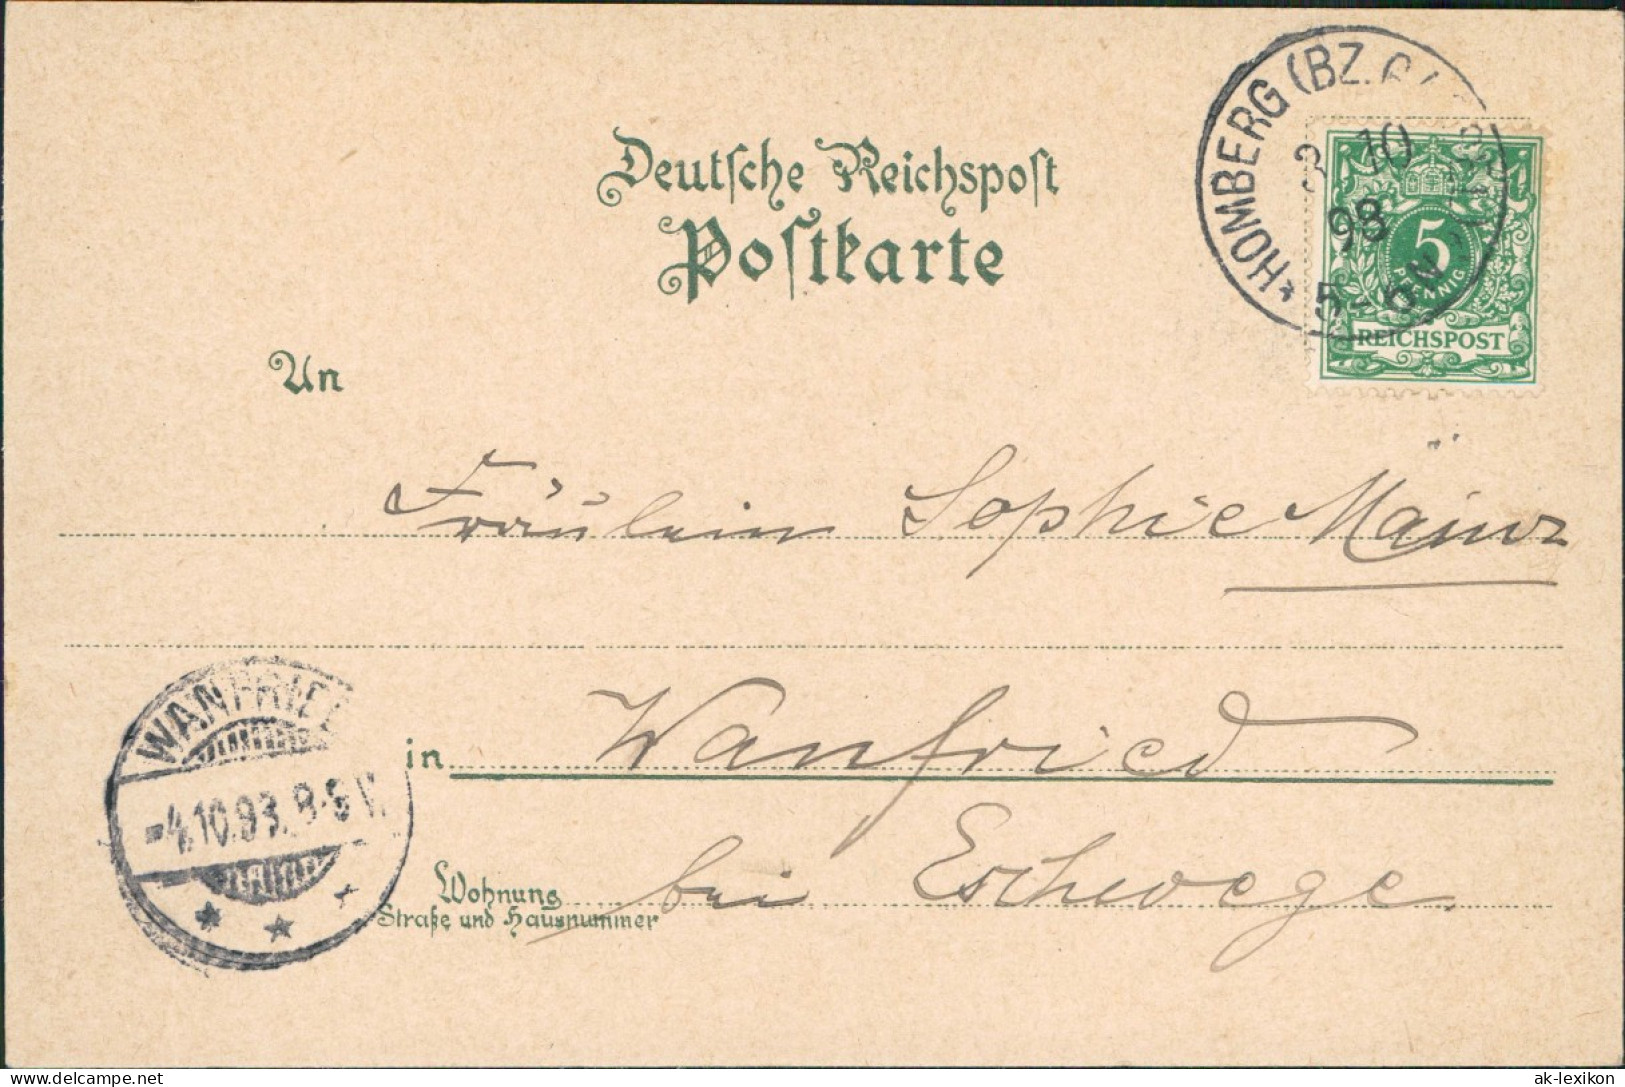 Deutsche Reichspost
Postkarte
HOMBERG (BZ.
3 10
98
5-6N
5
PFENNIG
REICHSPOST
An
Fräulein Sophie Mainz
in Wanfried
WANFRIED
-4.10.98. 8-9 V.
Wohnung
Straße und Hausnummer
bei Eschwege
www.delcampe.net
ak-lexikon